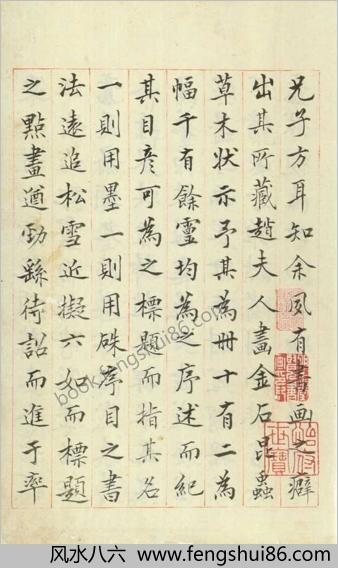 兄子方耳知余夙有書画之癖
出其所藏趙夫人畫金石昆蟲
草木狀示予其為冊十有二為
幅千有餘靈均為之序述而紀
其目彦可為之標題而指其名
一則用墨一則用硃序目之書
法遠追松雪近擬六如而標題
之點畫遒勁繇待詔而進于率
book.fengshui86.com
风水八六 www.fengshui86.com